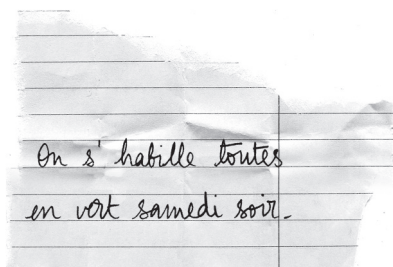 On s' habille toutes
en vert samedi soir.